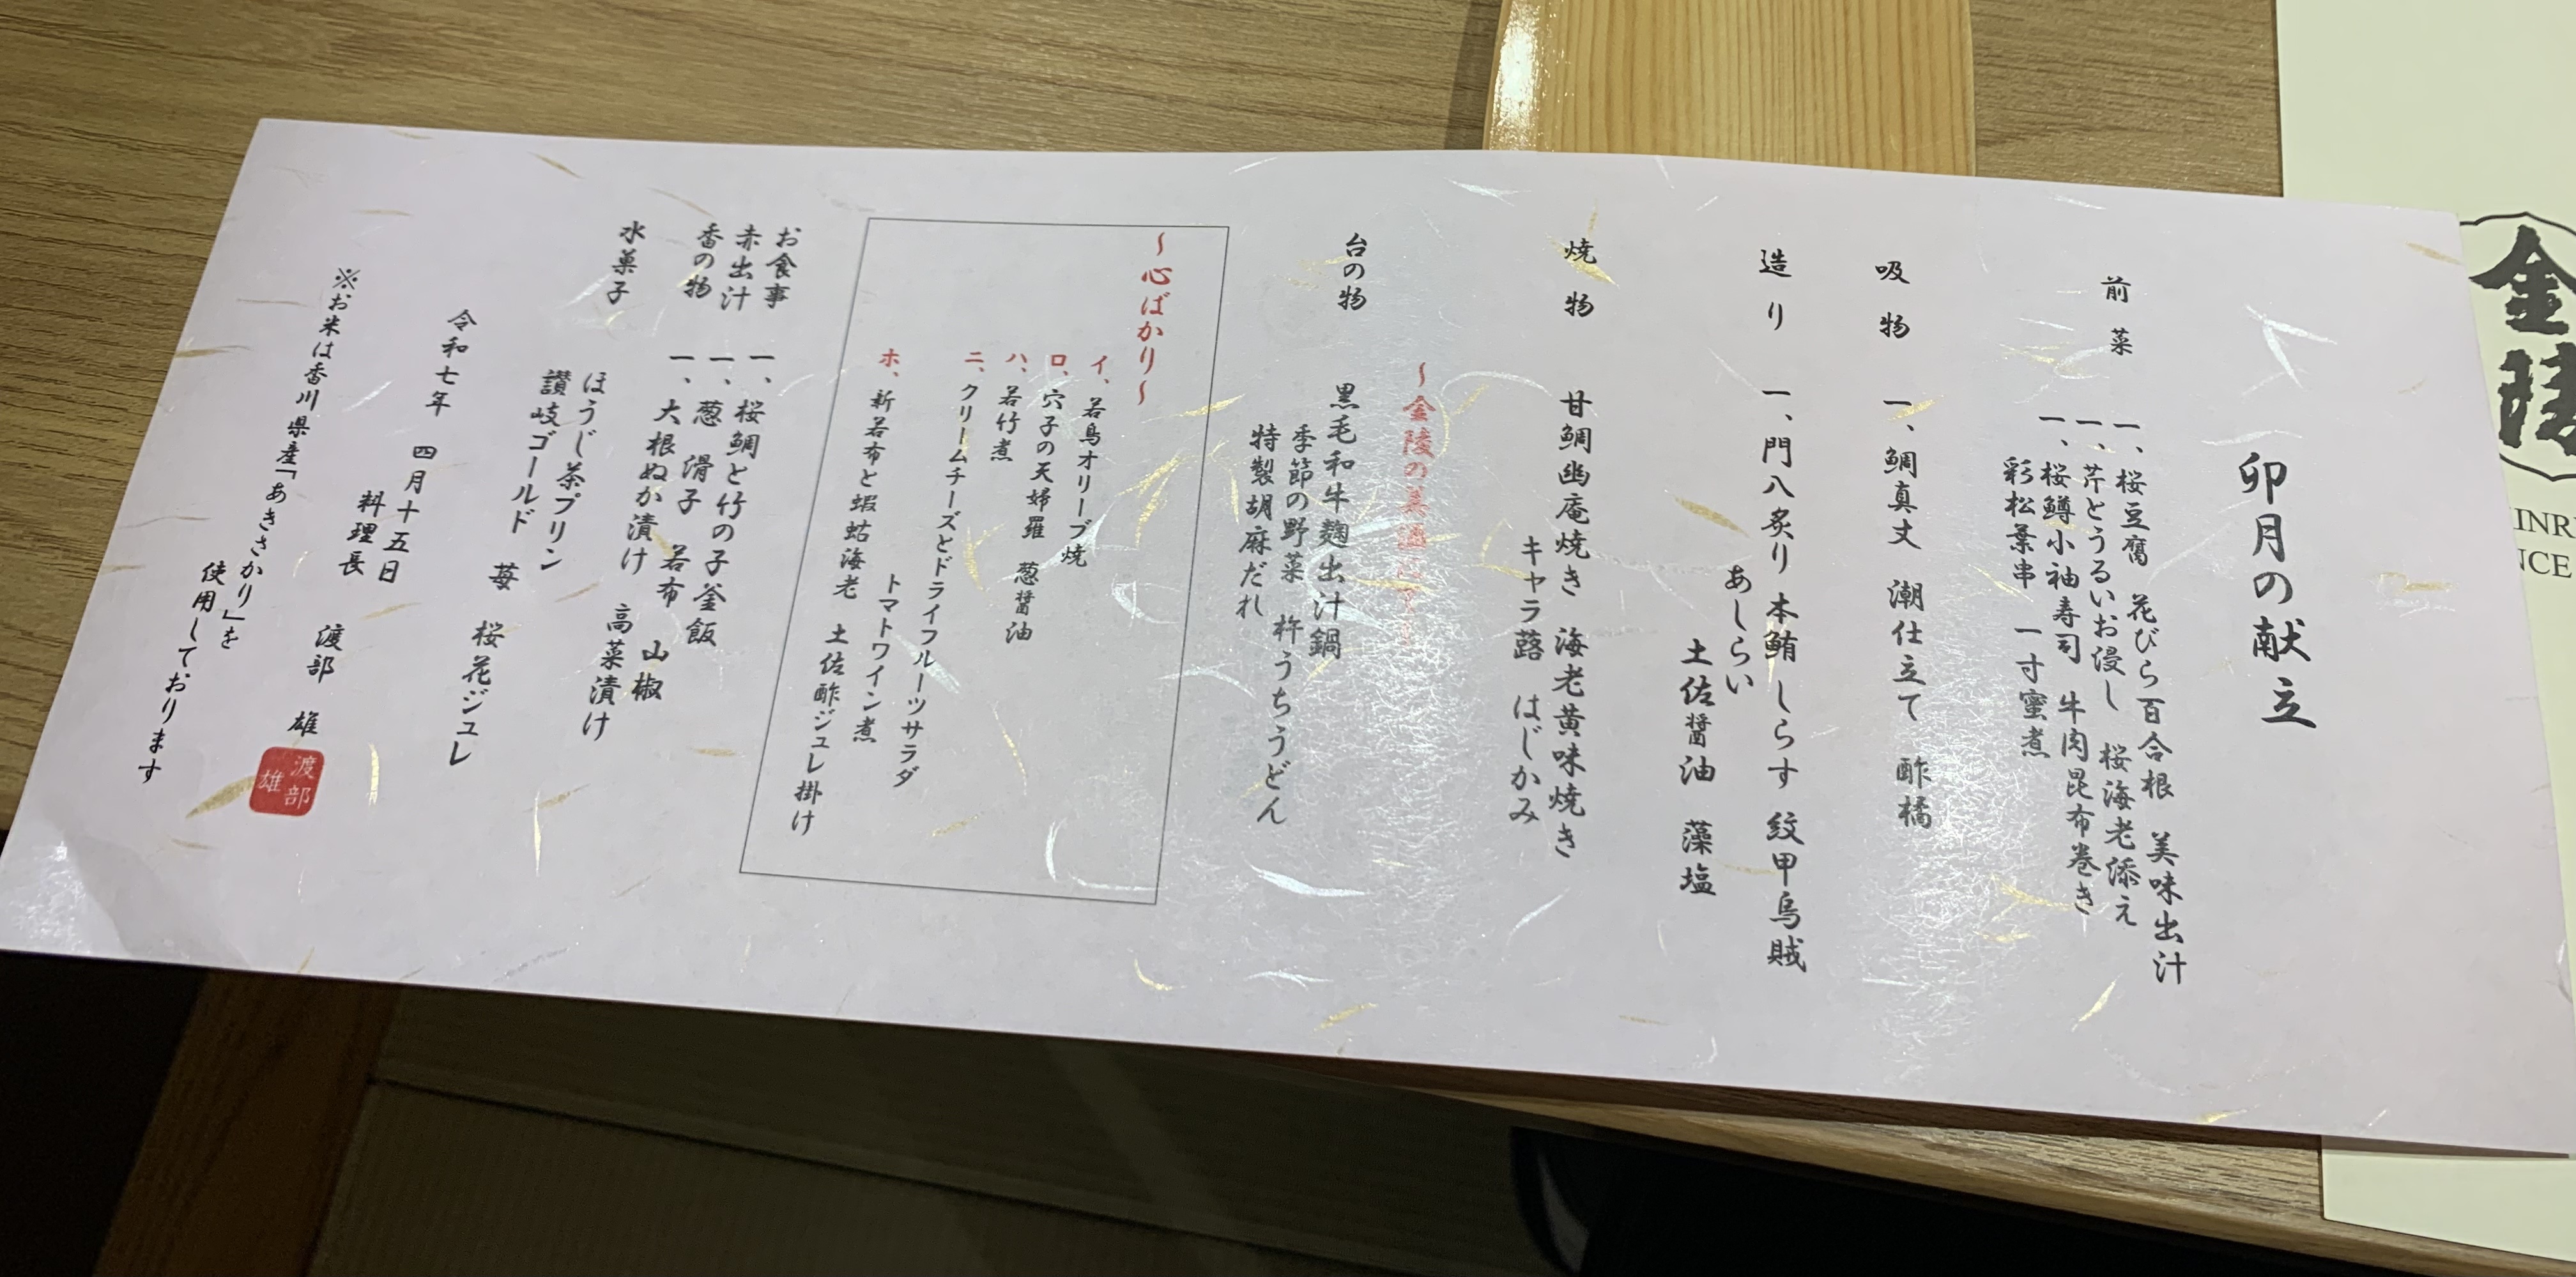 卯月の献立
前菜
一、桜豆腐 花びら百合根 美味出汁
一、芹とうるいお浸し 桜海老添え
一、桜鱒小袖寿司 牛肉昆布巻き
彩松葉串 一寸蜜煮
吸物
一、鯛真丈 潮仕立て 酢橘
造り
一、門八炙り 本鮪 しらす 紋甲烏賊
あしらい
土佐醤油 藻塩
焼物
甘鯛幽庵焼き 海老黄味焼き
キャラ蕗 はじかみ
〜金陵の
台の物
黒毛和牛麹出汁鍋
季節の野菜 杵うちうどん
特製胡麻だれ
〜心ばかり〜
イ、若鳥オリーブ焼
ロ、穴子の天婦羅 葱醤油
ハ、若竹煮
ニ、クリームチーズとドライフルーツサラダ
トマトワイン煮
ホ、新若布と蝦蛄海老 土佐酢ジュレ掛け
お食事
一、桜鯛と竹の子釜飯
赤出汁
一、葱 滑子 若布 山椒
香の物
一、大根ぬか漬け 高菜漬け
水菓子
ほうじ茶プリン
讃岐ゴールド 苺 桜花ジュレ
令和七年 四月十五日
料理長 渡部 雄
渡部
雄
※お米は香川県産「あきさかり」を
使用しております
金陵
INR
NCE